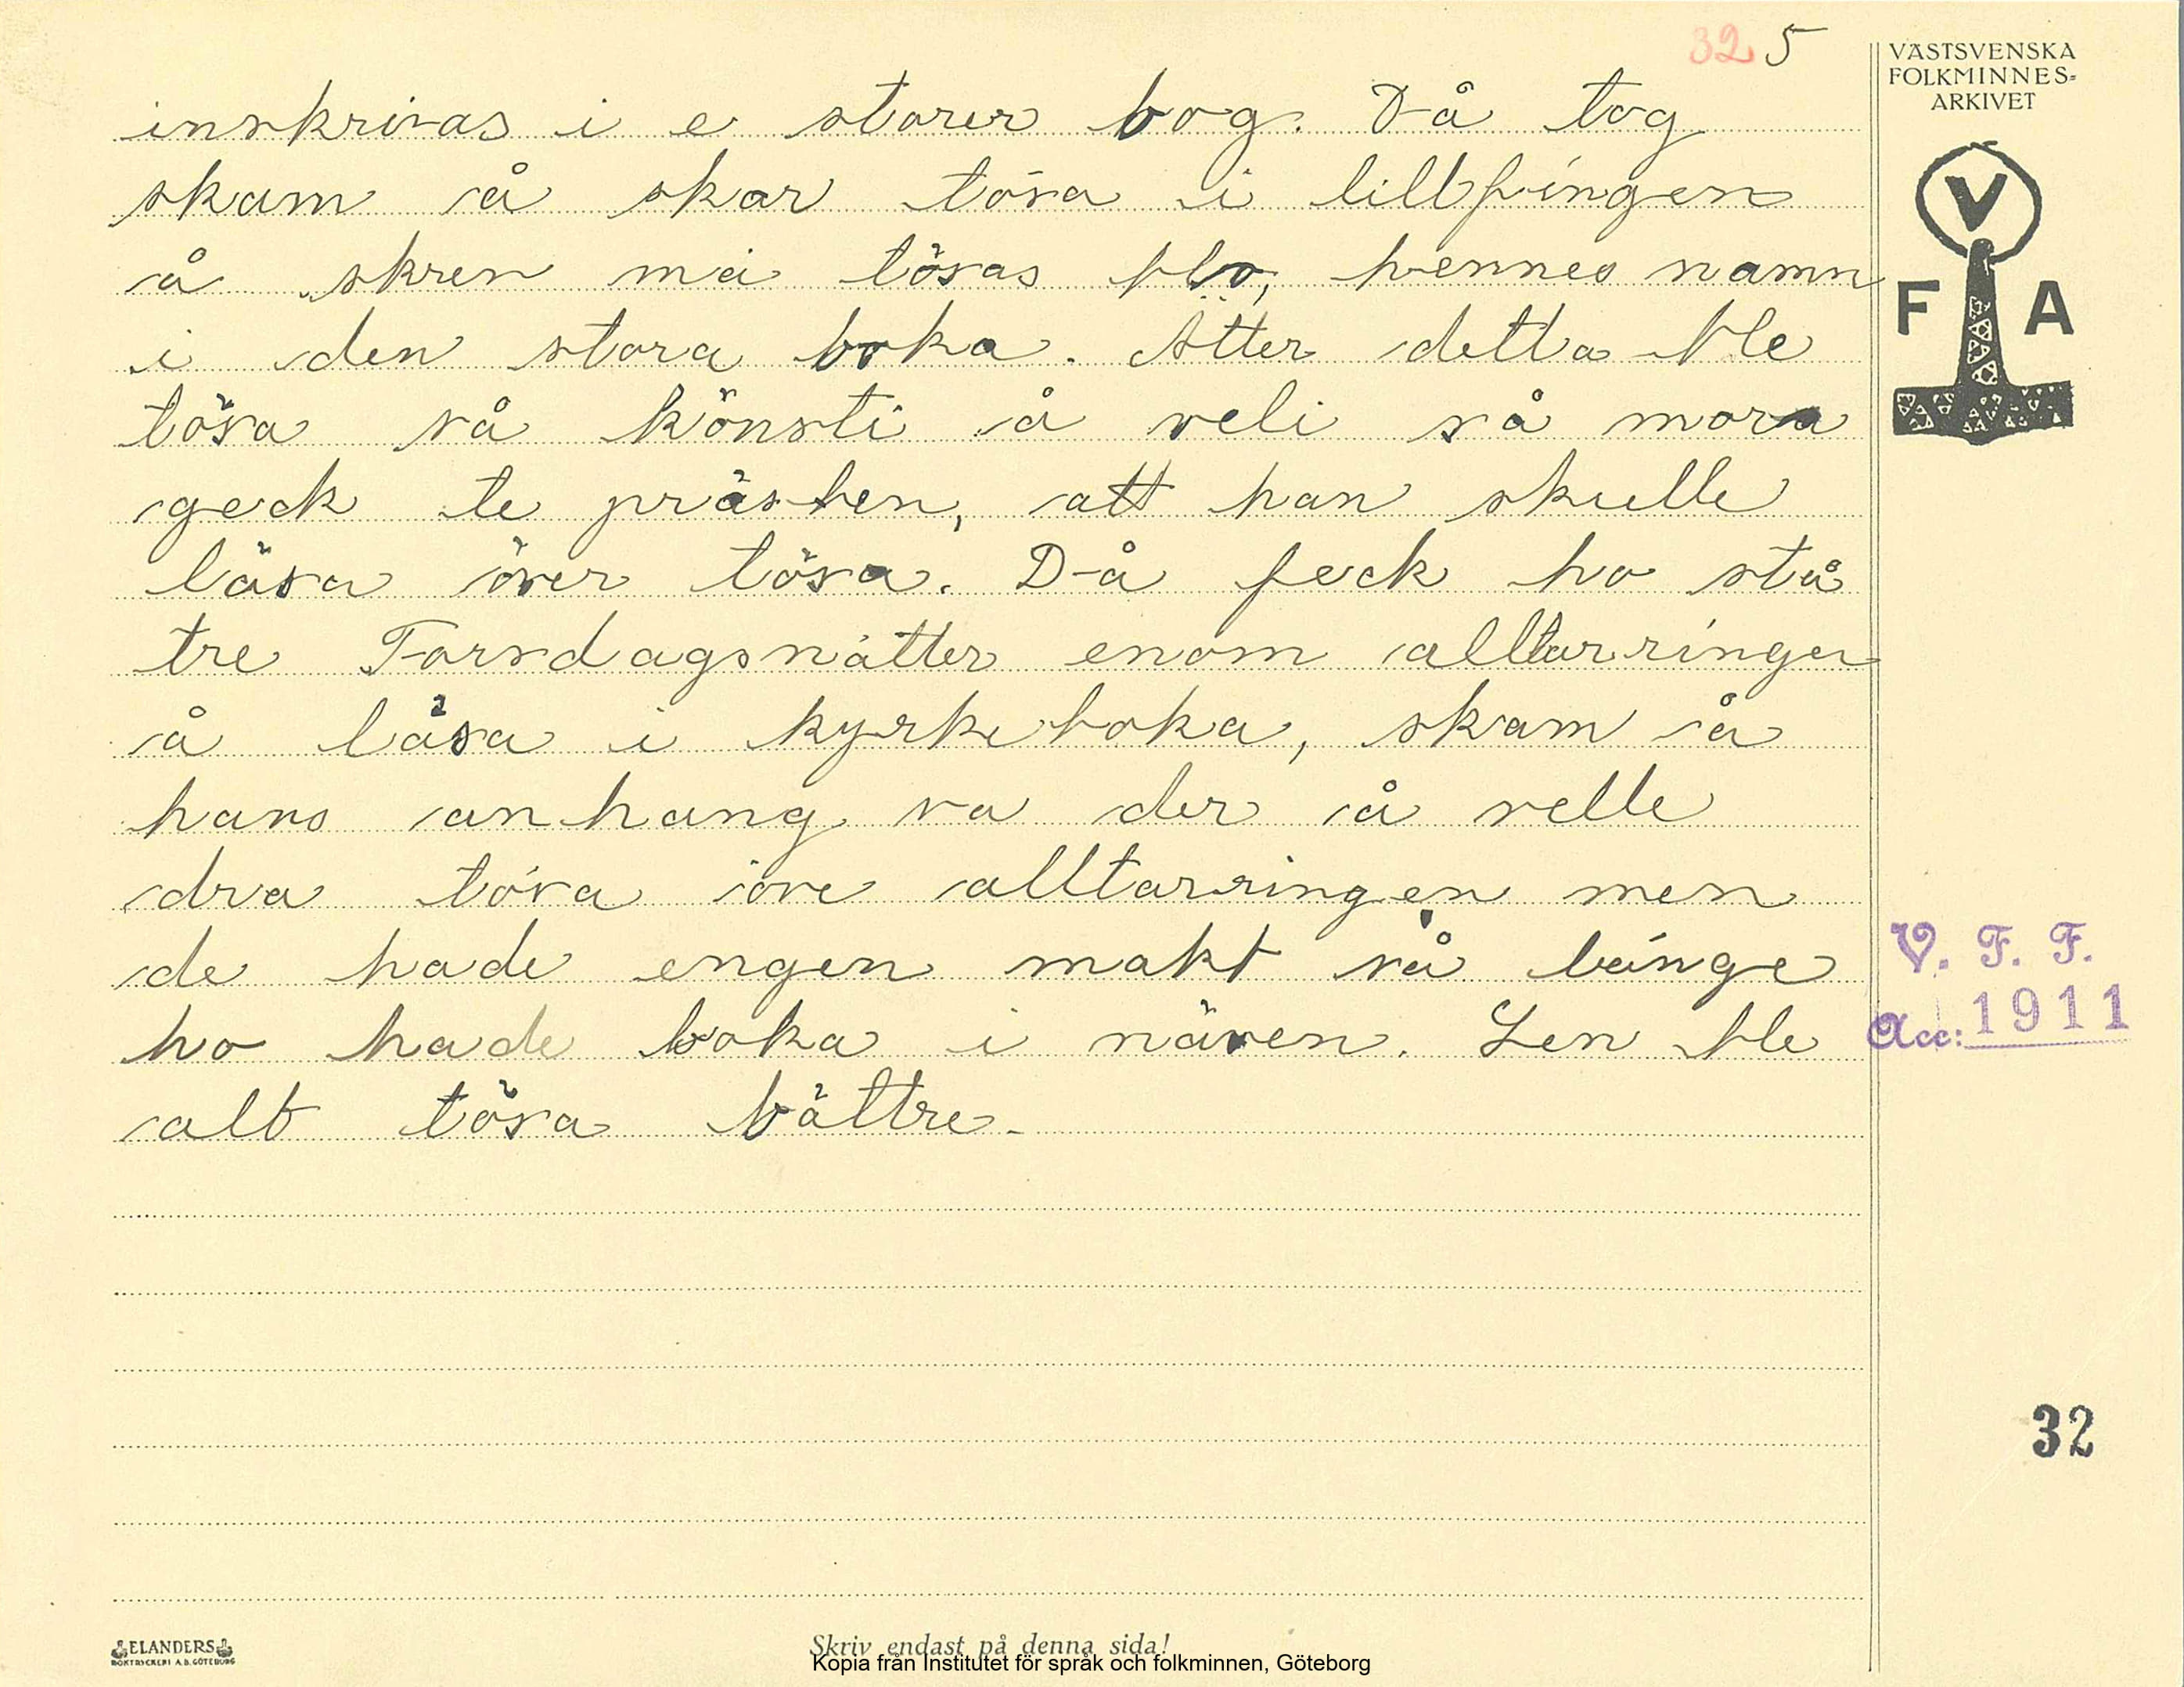 32 5
VÄSTSVENSKA
FOLKMINNES-
ARKIVET
inskrivas i e storer bog. Då tog
skam å skar tösa i lillfingen
å skrev mä tösas blo, hennes namn
i den stora boka. Ätter detta ble
tösa så könsti å veli så mora
geck te prästen, att han skulle
läsa över tösa. Då feck ho stå
tre Torsdagsnätter enom alltarringen
å läsa i kyrkeboka, skam å
hans anhang va der å velle
dra tösa öve alltarringen men
de hade engen makt så länge
ho hade boka i näven. Sen ble
alt tösa bättre.
V
F A
V. F. F.
Acc: 1911
32
ELANDERS
BOKTRYCKERI A.B. GÖTEBORG
Skriv endast på denna sida!
Kopia från Institutet för språk och folkminnen, Göteborg